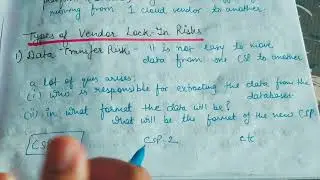 moving from 1 cloud vendor to another.
Types of Vendor Lock-In Risks
1) Data-Transfer Risk - It is not easy to move
data from one CSP to another
a lot of ques arises:
(i) who is responsible for extracting the data from the
databases.
(ii) in what format the data will be?
what will be the format of the new CSP.
CSP-2 etc